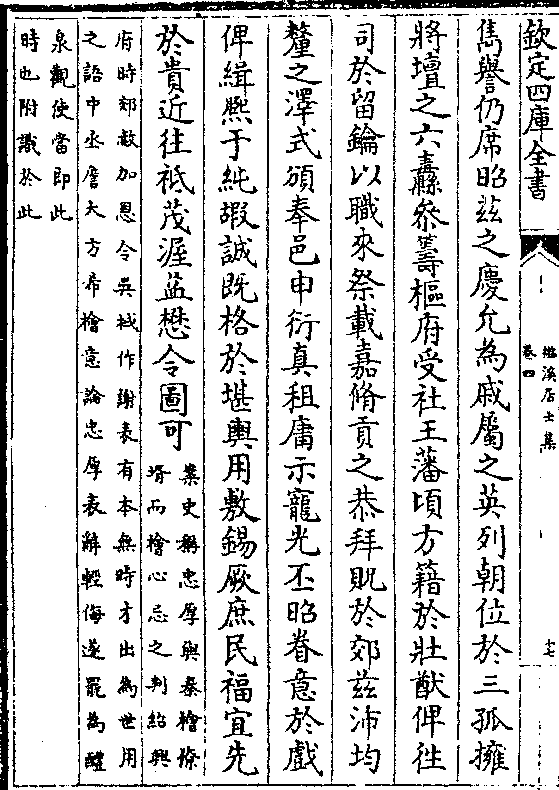 欽定四庫全書
澹溪居士集
卷四
十七
雋譽仍席昭茲之慶允為戚屬之英列朝位於三孤擁
將壇之六纛參籌樞府受社王藩頃方籍於壯猷俾往
司於留鑰以職來祭載嘉脩貢之恭拜貺於郊茲沛均
釐之澤式頒奉邑申衍真租庸示寵光丕昭眷意於戲
俾緝熙于純嘏誠既格於堪輿用敷錫厥庶民福宜先
於貴近往祗茂渥益懋令圖可
案史稱忠厚與秦檜僚
壻而檜心忌之判紹興
府時郊赦加恩令吳棫作謝表有本無時才出為世用
之語中丞詹大方希檜意論忠厚表辭輕侮遂罷為醴
泉觀使當即此
時也附識於此